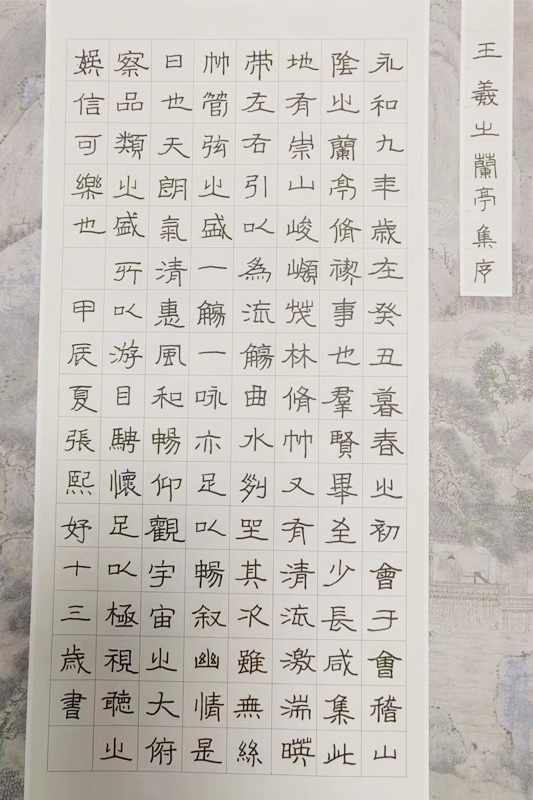 王羲之蘭亭集序
永和九年歲在癸丑暮春之初會于會稽山
陰之蘭亭脩禊事也羣賢畢至少長咸集此
地有崇山峻嶺茂林脩竹又有清流激湍暎
帶左右引以為流觴曲水列坐其次雖無絲
竹管弦之盛一觴一咏亦足以暢叙幽情是
日也天朗氣清惠風和暢仰觀宇宙之大俯
察品類之盛所以游目騁懷足以極視聽之
娛信可樂也 甲辰夏張熙妤十三歲書